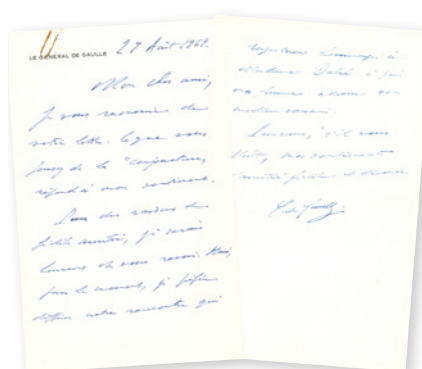 LE GÉNÉRAL DE GAULLE
27 Août 1969.
Mon cher ami,
Je vous remercie de
votre lettre. Ce que vous
pensez de la "conjoncture"
répond à mon sentiment.
Pour des raisons de
fidèle amitié, je serais
heureux de vous revoir. Mais,
pour le moment, je préfère
différer notre rencontre qui
respectueux hommages à
Madame Debré à qui
ma femme adresse son
meilleur souvenir.
s'il vous
mes sentiments
d'amitié fidèle et dévouée.
C. de Gaulle